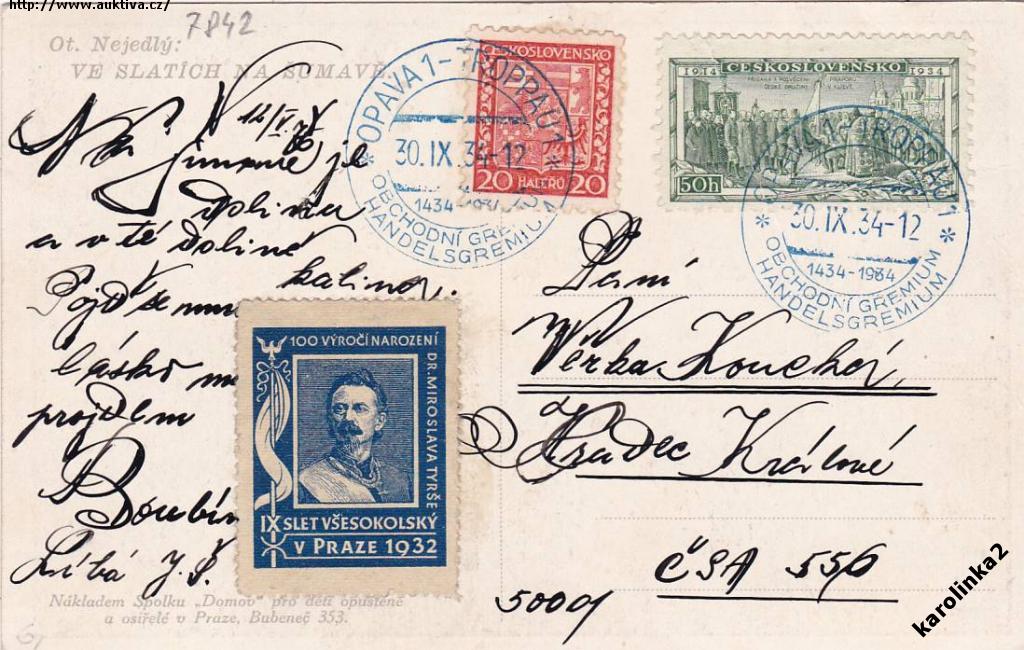 http://www.auktiva.cz/
7842
Ot. Nejedlý:
VE SLATÍCH NA ŠUMAVĚ.
je
dolina
a v té dolině
kalina.
Pojď se mnou
lásko
projdem
Boubín
Líbá J.Š.
Nákladem Spolku „Domov" pro děti opuštěné
a osiřelé v Praze, Bubeneč 353.
ČESKOSLOVENSKO
20 HALÉŘŮ 20
OPAVA 1 - TROPPAU 1
30.IX.34-12
1434-1934
OBCHODNÍ GREMIUM
HANDELSGREMIUM
1914 ČESKOSLOVENSKO 1934
50h
OPAVA 1 - TROPPAU 1
30.IX.34-12
1434-1934
OBCHODNÍ GREMIUM
HANDELSGREMIUM
100 VÝROČÍ NAROZENÍ
DR. MIROSLAVA TYRŠE
IX SLET VŠESOKOLSKÝ
V PRAZE 1932
Paní
Věrka
Hradec Králové
ČSA 556
50009
karolinka2